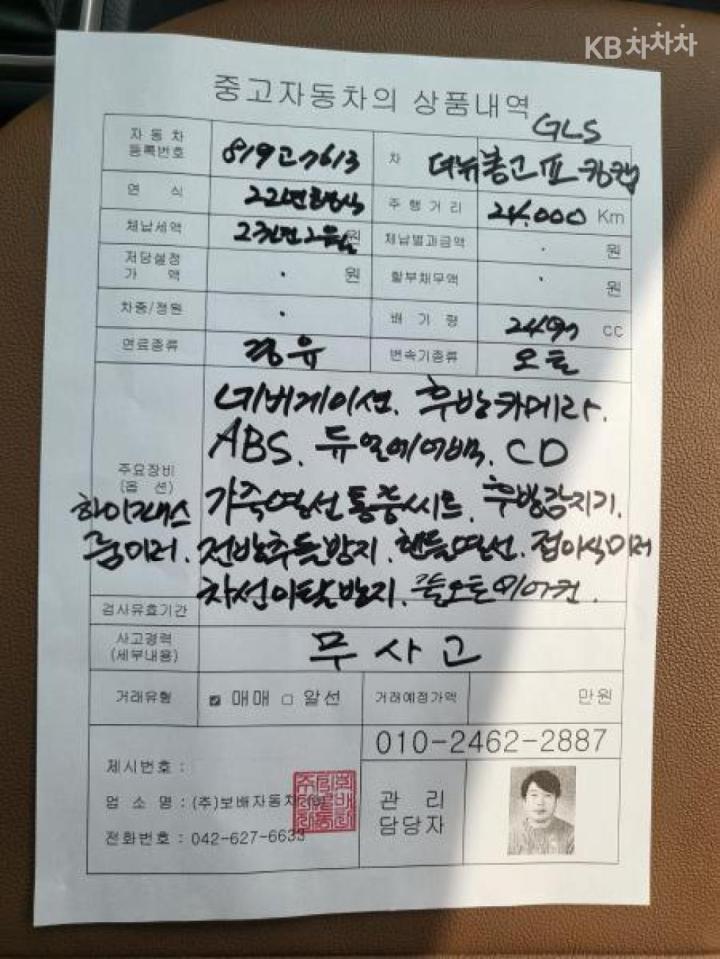 KB차차차
중고자동차의 상품내역
GLS
자동차 등록번호 819고7613 차 더뉴봉고Ⅲ킹캡
연 식 22년형식 주행거리 24,000 Km
체납세액 원 체납범과금액 . 원
저당설정 가 액 . 원 할부채무액 . 원
차중/정원 . 배기량 2497 cc
연료종류 경유 변속기종류 오토
네비게이션. 후방카메라.
ABS. 듀얼에어백. CD
주요장비 (옵 션)
하이패스 가죽열선통풍씨트. 후방감지기.
룸미러. 전방추돌방지. 핸들열선. 접이식미러
차선이탈방지. 풀오토에어컨.
검사유효기간
사고경력 (세부내용) 무사고
거래유형 ☑ 매매 □ 알선 거래예정가액 만원
010-2462-2887
제시번호 :
업 소 명 : (주)보배자동차
전화번호 : 042-627-6633
관 리
담당자